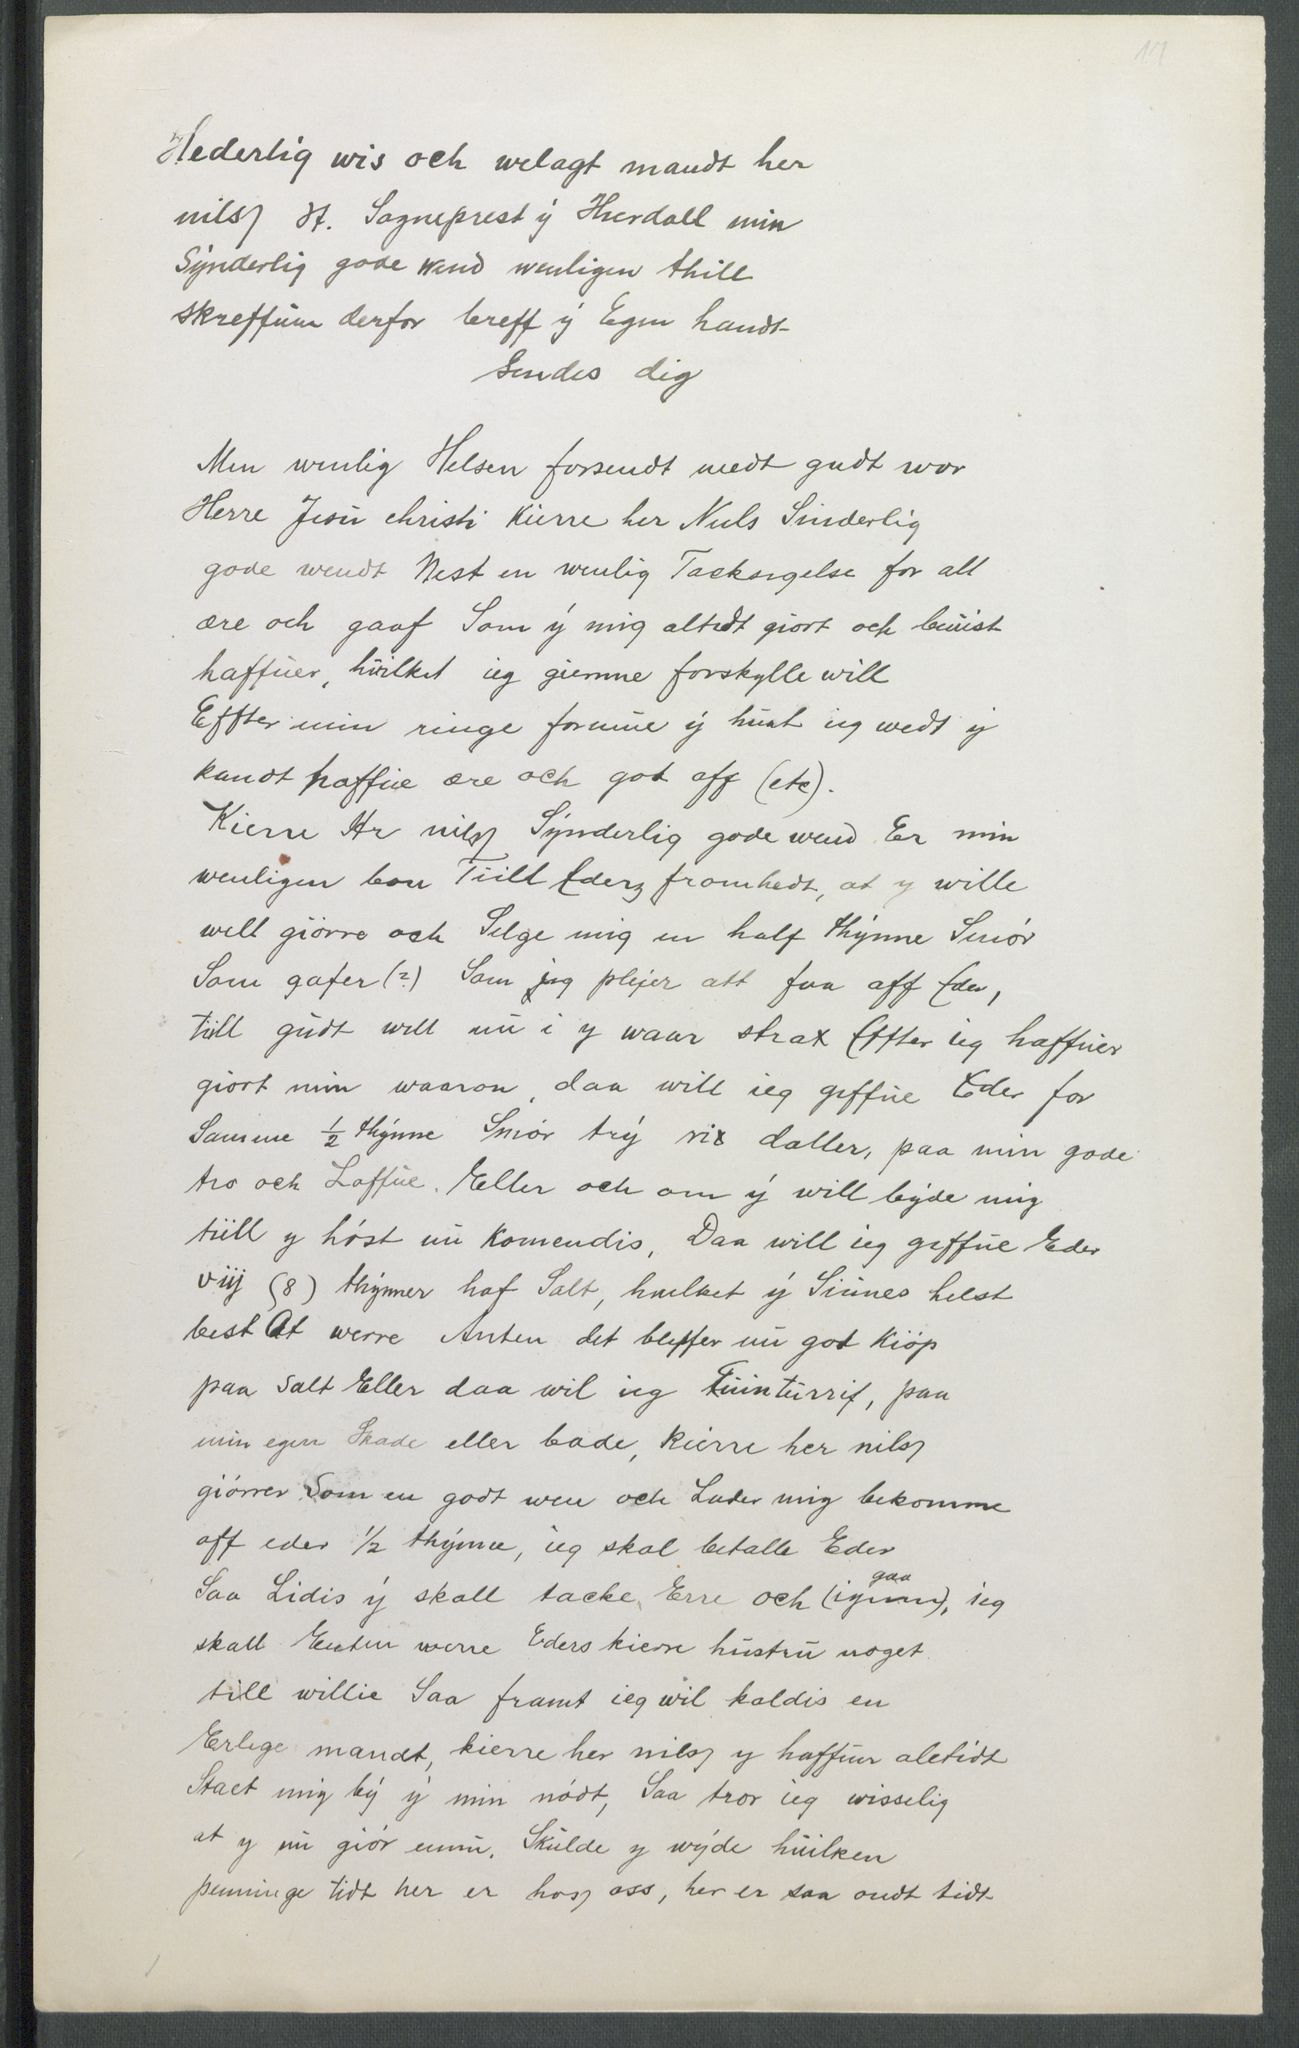 Hederlig wis och welagt mandt her
nilsz H. Sogneprest ÿ Hierdall min
Sÿnderlig gode wend wenligen thill
skreffüm derfor breff ÿ Egen handt
Sendes dig
Men wenlig Helsen forsendt medt gudt wor
Herre Jesü christi kierre her Niels Sinderlig
gode wendt Nest en wenlig Tacksigelse for all
ære och gaaf Som ÿ mig altidt giort och beüist
haffüer, hüilket ieg gierne forskylle will
Effter min ringe formüe ÿ hüat ieg wedt ÿ
kandt haffüe ære och got aff (etc).
Kierre Hr nilsz Sÿnderlig gode wend Er min
wenligen bon Tiill Ederz fromhedt, at y wille
well giörre och Selge mig en half thÿnne Smör
Som gafer (?) Som jeg plejer att faa aff Eder,
till güdt well nü i y waar strax Effter ieg haffüer
giort min waaron, daa will ieg geffüe Eder for
Samme ½ thÿnne Smör trÿ rix daller, paa min gode
tro och Loffüe. Eller och om ÿ will bÿde mig
tiill y höst nü komendis, Daa will ieg geffüe Eder
viij (8) thÿnner haf Salt, huilket ÿ Siünes helst
best At werre Anten det bleffer nü got kiöp
paa Salt Eller daa wil ieg, paa
min egen Skade eller bade, kierre her nilsz
giörrer Som en godt wen och Lader mig bekomme
aff eder ½ thÿnne, ieg skal betalle Eder
Saa Lidis ÿ skall tacke Erre och gaa, ieg
skall Enten werre Eders kierre hüstrü noget
till willie Saa framt ieg wil kaldis en
Erlige mandt, kierre her nilsz y haffüer aletidt
Staet mig bÿ ÿ min nödt, Saa tror ieg wisselig
at y nü giör ennü. Skülde y wÿde hüilken
penninge tidt her er hosz oss, her er saa ondt tidt